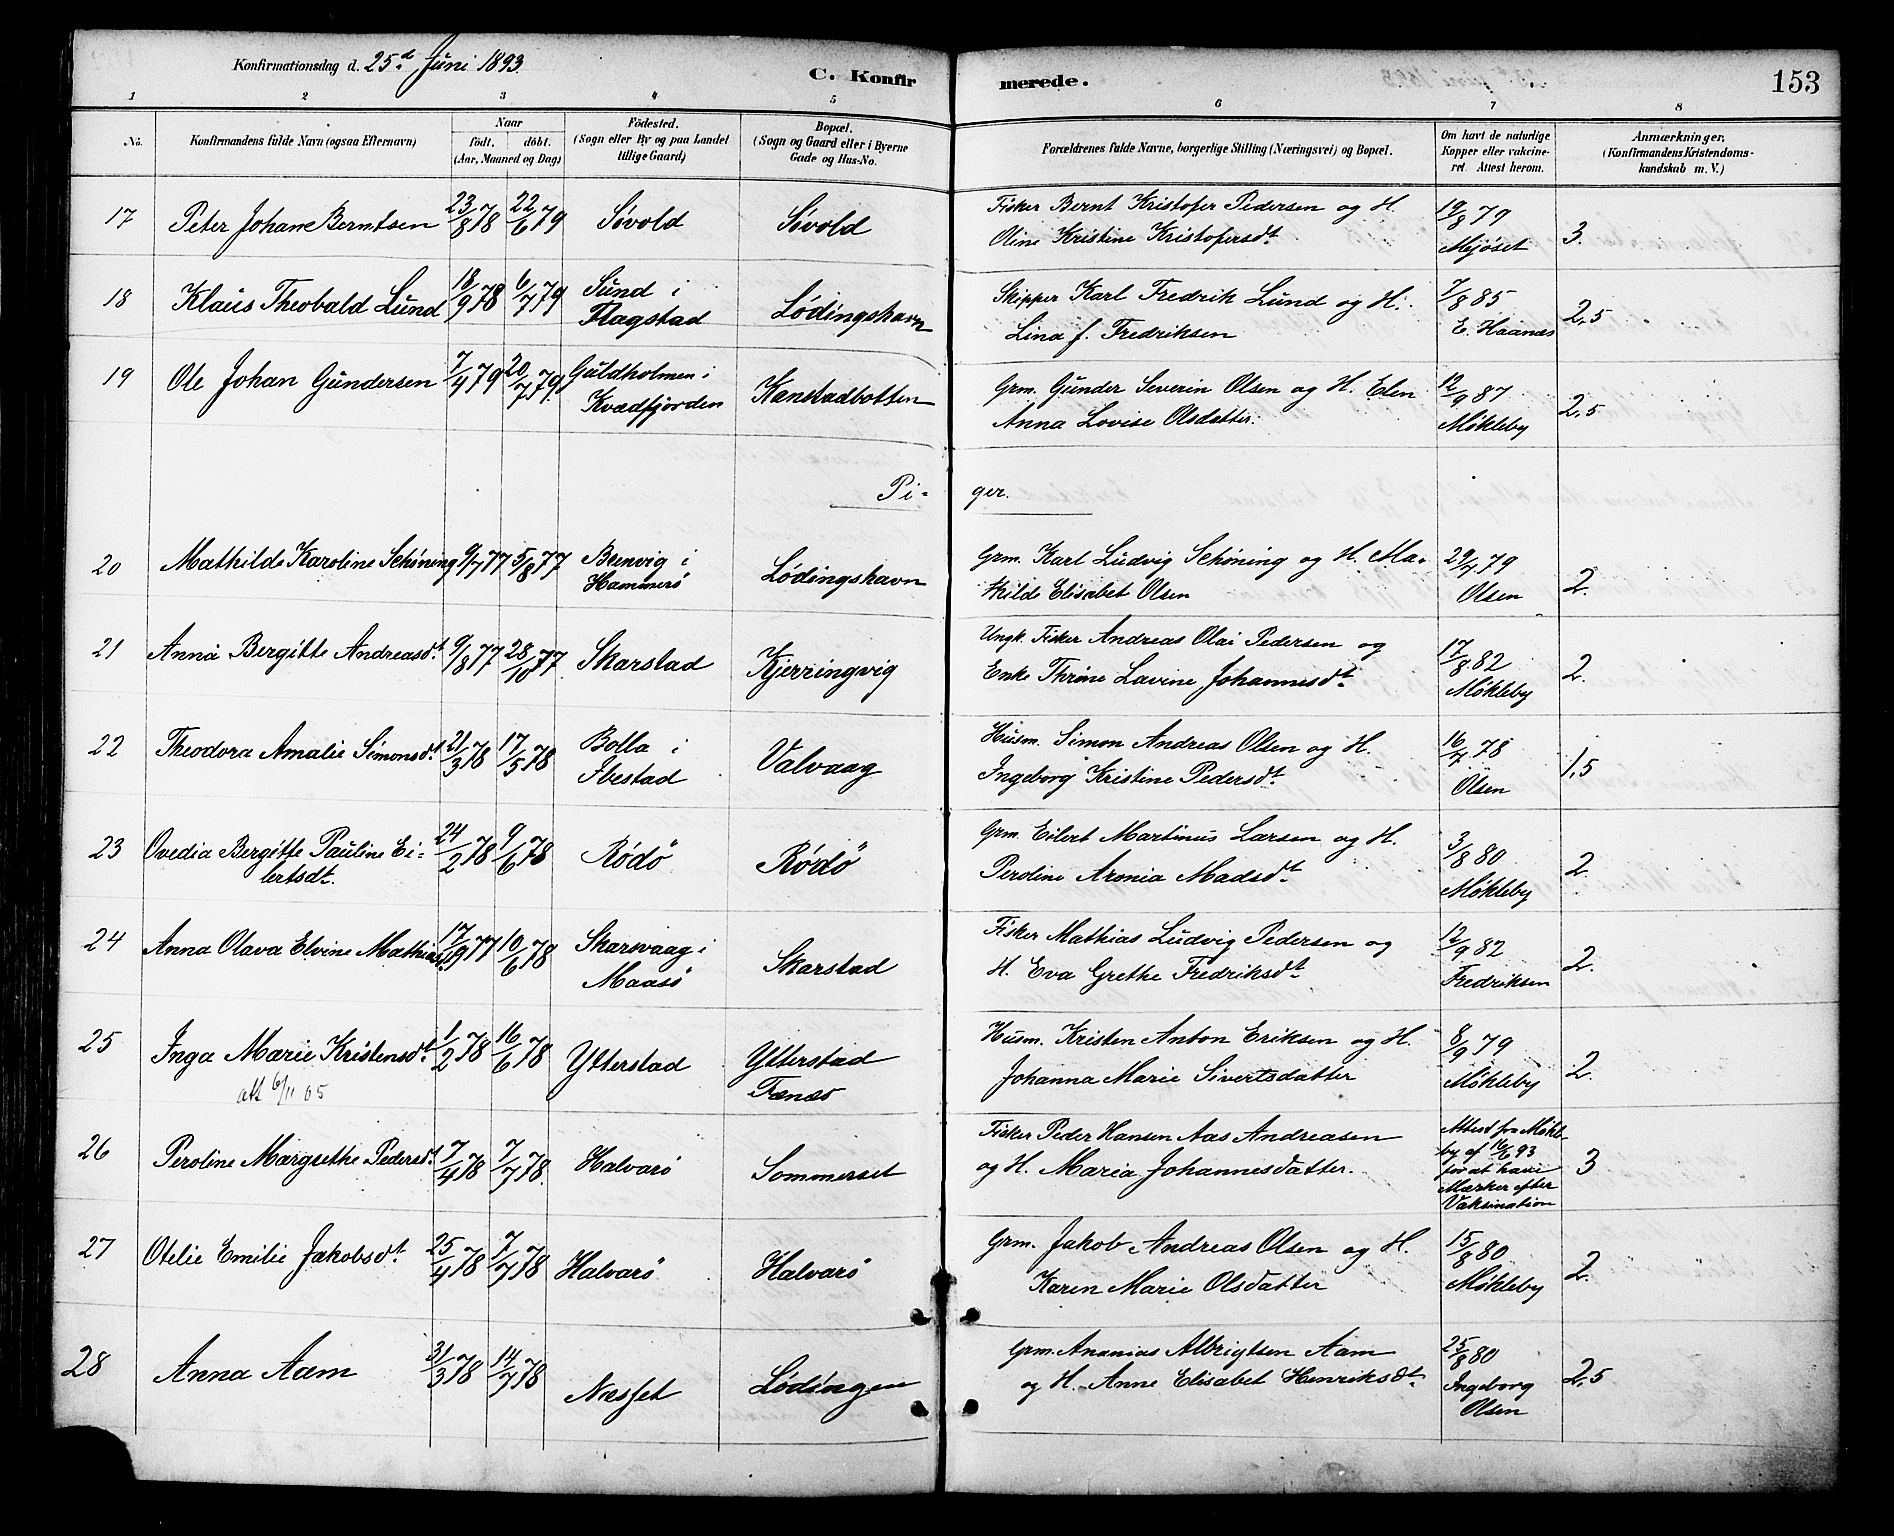 Konfirmationsdag d. 25.d Juni 1893.
C. Konfir
merede.
153
1 2 3 4 5 6 7 8
No.
Konfirmandens fulde Navn (ogsaa Efternavn)
Naar
født. döbt.
(Aar, Maaned og Dag)
Födested.
(Sogn eller By og paa Landet
tillige Gaard)
Bopæl.
(Sogn og Gaard eller i Byerne
Gade og Hus-No.
Forældrenes fulde Navne, borgerlige Stilling (Næringsvei) og Bopæl.
Om havt de naturlige
Kopper eller vakcine-
ret. Attest herom.
Anmærkninger,
(Konfirmandens Kristendoms-
kundskab m. V.)
17 Peter Johan Berntsen 23/8 78 22/6 79 Sövold Sövold
Fisker Bernt Kristofer Pedersen og H.
Oline Kristine Kristofersdt
19/8 79
Mjöset
3.
18 Klaus Theobald Lund 18/9 78 6/7 79
Sund i
Flagstad
Lödingshavn
Skipper Karl Fredrik Lund og H.
Lina f. Fredriksen
7/8 85
E. Haanæs
2,5
19 Ole Johan Gundersen 7/4 79 20/7 79.
Guldholmen i
Kvædfjorden
Kanstadbotten
Grm. Gunder Severin Olsen og H. Elen
Anna Lovise Olsdatter.
12/9 87
Mökleby
2,5
Pi-
ger.
20 Mathilde Karoline Schöning 9/7 77 5/8 77
i
Hammerö
Lödingshavn
Grm. Karl Ludvig Schöning og H. Ma-
thilde Elisabet Olsen
29/4 79
Olsen
2.
21 Anna Bergitte Andreasdt 9/8 77 28/10 77. Skarstad Kjerringvig
Ungk. Fisker Andreas Olai Pedersen og
Enke Thrine Lavine Johannesdt
17/8 82
Mökleby
2.
22 Theodora Amalie Simonsdt 21/3 78 17/5 78
Bolla i
Ibestad
Valvaag
Husm. Simon Andreas Olsen og H.
Ingeborg Kristine Pedersdt
16/7 78
Olsen
1,5
23 Ovedia Bergitte Pauline Ei-
lertsdt.
24/2 78 9/6 78 Rödö Rödö
Grm. Eilert Martinus Larsen og H.
Peroline Aronia Madsdt
3/8 80
Mökleby
2.
24 Anna Olava Elvine Mathiasdt 17/9 77 10/6 78
Skarsvaag i
Maasö
Skarstad
Fisker Mathias Ludvig Pedersen og
H. Eva Grethe Fredriksdt
12/9 82
Fredriksen
2.
25 Inga Marie Kristensdt 1/2 78 16/6 78 Ytterstad
att 6/11 05
Ytterstad
Fænæs
Husm. Kristen Anton Eriksen og H.
Johanna Marie Sivertsdatter
8/9 79
Mökleby
2.
26 Peroline Margrethe Pedersdt 7/4 78 7/7 78. Halvarö Sommerset
Fisker Peder Hansen Aas Andreasen
og H. Maria Johannesdatter.
Attest fra Mökle-
by af 16/6 93
for at have
Mærker efter
Vaksination
3
27 Otelie Emilie Jakobsdt 25/4 78 7/7 78 Halvarö Halvarö
Grm. Jakob Andreas Olsen og H.
Karen Marie Olsdatter
15/8 80
Mökleby
2.
28 Anna Aam 31/3 78 14/7 78 Næsset Lödingen
Grm. Ananias Albrigtsen Aam
og H. Anne Elisabet Henriksdt
25/8 80
Ingeborg
Olsen
2,5